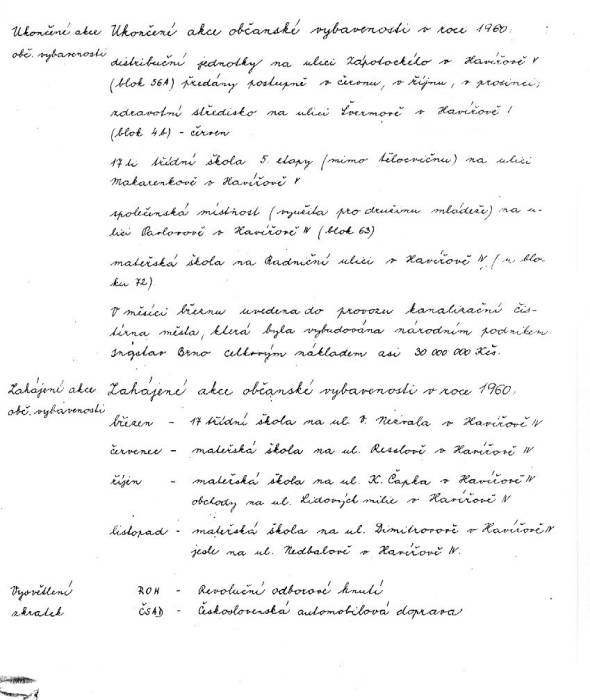 Ukončení akce
obč. vybavenosti
Ukončení akce občanské vybavenosti v roce 1960:
distribuční jednotky na ulici Zápotockého v Havířově V
(blok 56A) předány postupně v červnu, v říjnu, v prosinci;
zdravotní středisko na ulici Švermově v Havířově I
(blok 4b) - červen
17 ti třídní škola 5. etapy (mimo tělocvičnu) na ulici
Makarenkově v Havířově V
společenská místnost (využita pro družinu mládeže) na u-
lici Pavlovově v Havířově IV (blok 63)
mateřská škola na Radniční ulici v Havířově IV (u blo-
ku 72)
V měsíci březnu uvedena do provozu kanalizační čis-
tírna města, která byla vybudována národním podnikem
Ingstav Brno celkovým nákladem asi 30 000 000 Kčs.
Zahájení akce
obč. vybavenosti
Zahájené akce občanské vybavenosti v roce 1960:
březen - 17 třídní škola na ul. V. Nezvala v Havířově IV
červenec - mateřská škola na ul. Resslově v Havířově IV
říjen - mateřská škola na ul. K. Čapka v Havířově IV
obchody na ul. Lidových milic v Havířově IV
listopad - mateřská škola na ul. Dimitrovově v Havířově IV
jesle na ul. Nedbalově v Havířově IV.
Vysvětlení
zkratek
ROH - Revoluční odborové hnutí
ČSAD - Československá automobilová doprava